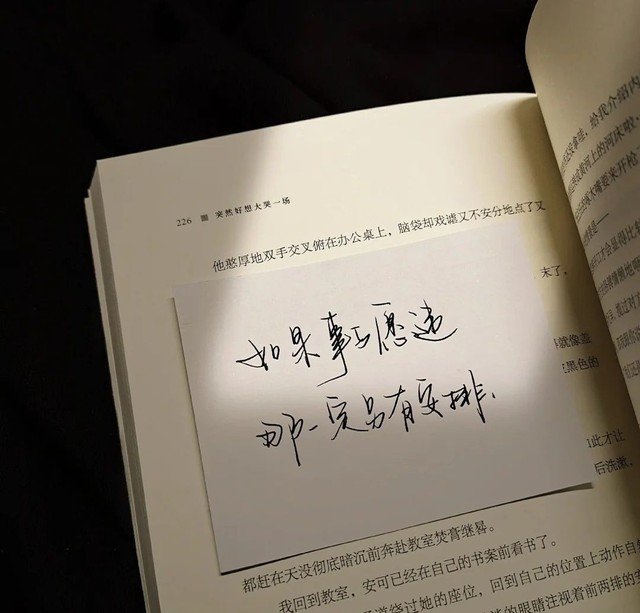 226 突然好想大哭一场
他憨厚地双手交叉俯在办公桌上，脑袋却戏谑又不安分地点了又
末了，
如果事与愿违
那一定另有安排.
就像盖
黑色的
此才让
后洗漱，
都赶在天没彻底暗沉前奔赴教室焚膏继晷。
我回到教室，安可已经在自己的书案前看书了。
绕过她的座位，回到自己的位置上动作自
眼睛注视着前两排的安
给我介绍内
河上的河床啦，